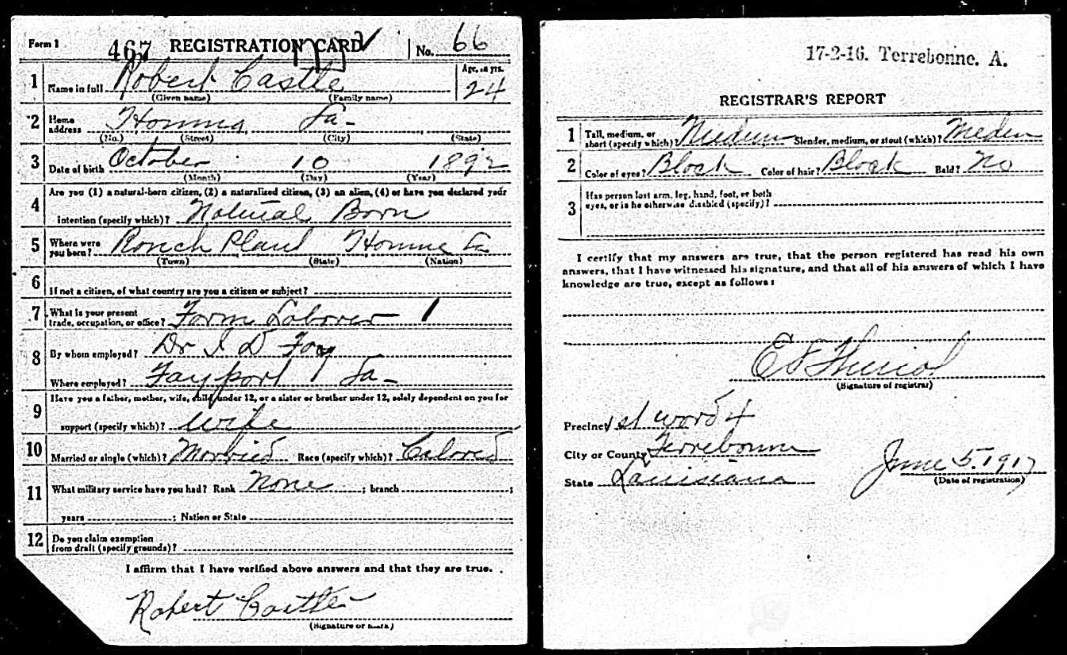 Form 1 467 REGISTRATION CARD No. 66
1 Name in full Robert Castle Age, in yrs. 24
(Given name) (Family name)
2 Home address Houma, La-
(No.) (Street) (City) (State)
3 Date of birth October 10 1892
(Month) (Day) (Year)
Are you (1) a natural-born citizen, (2) a naturalized citizen, (3) an alien, (4) or have you declared your
4 intention (specify which)? Natural Born
5 Where were you born? Ranch Plant Houma La
(Town) (State) (Nation)
6 If not a citizen, of what country are you a citizen or subject?
7 What is your present trade, occupation, or office? Farm Laborer 1
8 By whom employed? Dr I D Fay
Where employed? Fayport La-
Have you a father, mother, wife, child under 12, or a sister or brother under 12, solely dependent on you for
9 support (specify which)? Wife
10 Married or single (which)? Married Race (specify which)? Colored
11 What military service have you had? Rank None ; branch ;
years ; Nation or State
12 Do you claim exemption from draft (specify grounds)?
I affirm that I have verified above answers and that they are true.
Robert Castle
(Signature or mark)
17-2-16. Terrebonne. A.
REGISTRAR'S REPORT
1 Tall, medium, or short (specify which)? Medium Slender, medium, or stout (which)?
2 Color of eyes? Black Color of hair? Black Bald? No
3 Has person lost arm, leg, hand, foot, or both eyes, or is he otherwise disabled (specify)?
I certify that my answers are true, that the person registered has read his own
answers, that I have witnessed his signature, and that all of his answers of which I have
knowledge are true, except as follows:
(Signature of registrar)
Precinct 1st ward 4
City or County Terrebonne
State Louisiana June 5. 1917
(Date of registration)